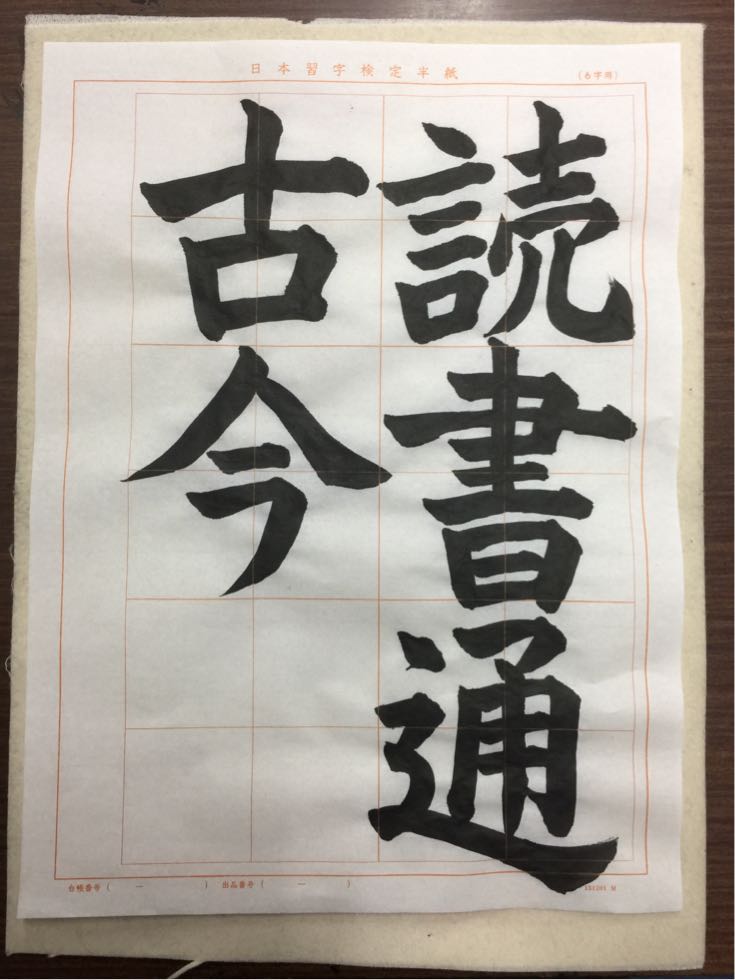 日本習字検定半紙
(6字用)
読書通
古今
台帳番号 ( ー )
出品番号 ( ー )